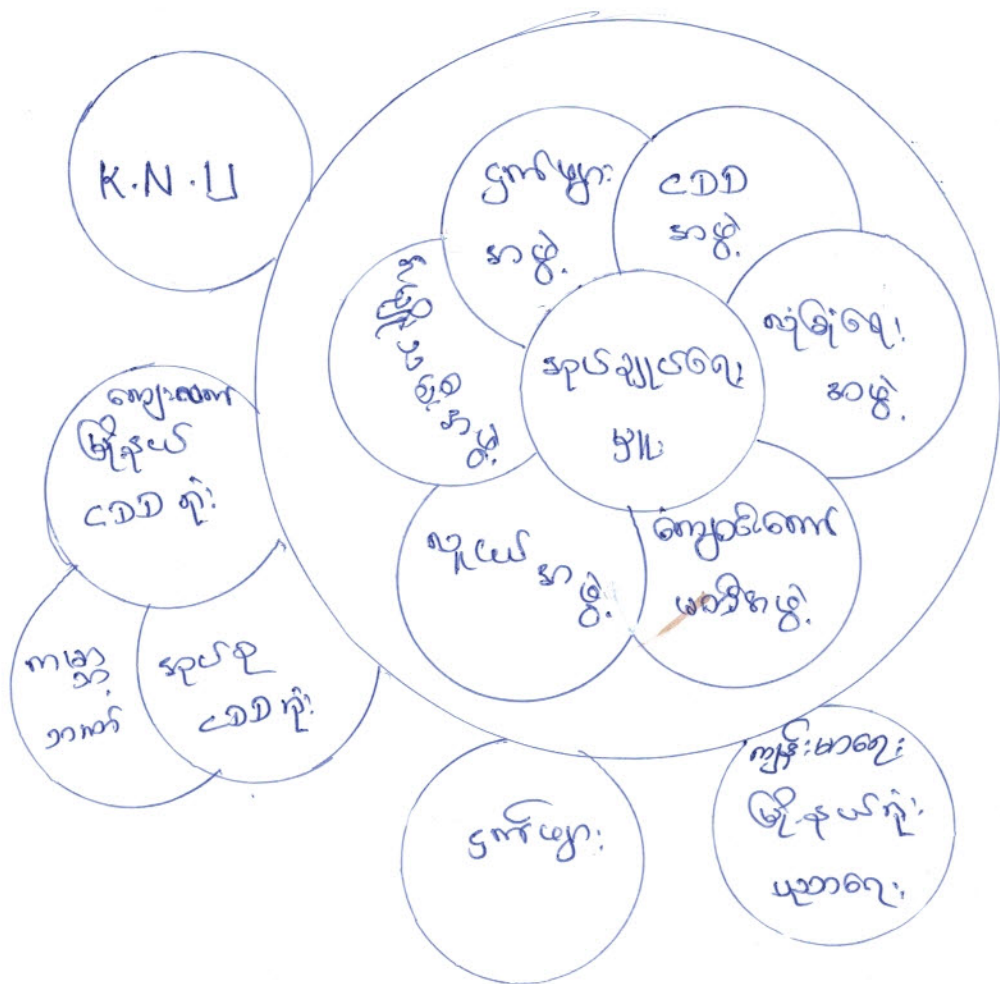 K.N.U
ဌက်ဖျား
အဖွဲ့
CDD
အဖွဲ့
လုံခြုံရေး
အဖွဲ့
အုပ်ချုပ်ရေး
မှူး
အဖွဲ့
လူငယ် အဖွဲ့
မြို့နယ်
CDD ရုံး
ကမ္ဘာ့
ဘဏ်
အုပ်စု
CDD ရုံး
ဌက်ဖျား
ကျန်းမာရေး
မြို့နယ်ရုံး
ပညာရေး